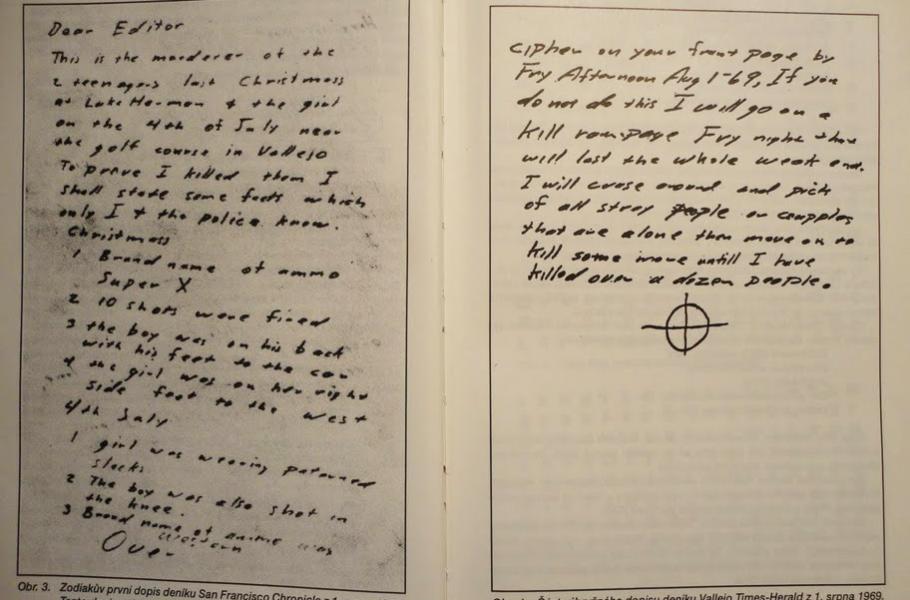 Dear Editor
This is the murderer of the
2 teenagers last Christmass
at Lake Herman & the girl
on the 4th of July near
the golf course in Vallejo
To prove I killed them I
shall state some facts which
only I & the police know.
Christmass
1 Brand name of ammo
Super X
2 10 shots were fired
3 the boy was on his back
with his feet to the car
4 the girl was on her right
side feet to the west
4th July
1 girl was wearing paterned
slacks
2 The boy was also shot in
the knee.
3 Brand name of ammo was
Western
Over
Obr. 3. Zodiakův první dopis deníku San Francisco Chronicle z
cipher on your front page by
Fry Afternoon Aug 1-69, If you
do not do this I will go on a
kill rampage Fry night that
will last the whole week end.
I will cruse around and pick
of all stray people or coupples
that are alone then move on to
kill some more untill I have
killed over a dozen people.
dopisu deníku Vallejo Times-Herald z 1. srpna 1969.